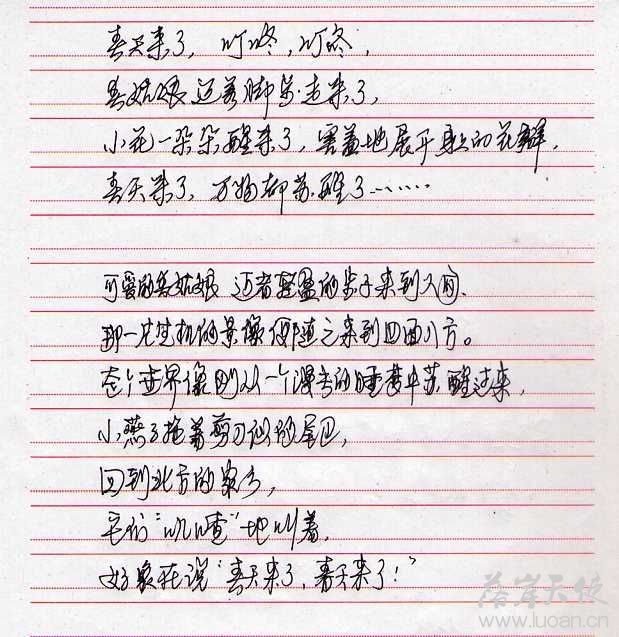 春天来了，叮咚，叮咚，
春姑娘迈着脚步走来了，
小花一朵朵醒来了，害羞地展开身上的花瓣，
春天来了，万物都苏醒了……
可爱的春姑娘迈着轻盈的步子来到人间、
那一片生机的景像便随之来到四面八方。
整个世界像刚从一个漫长的睡梦中苏醒过来，
小燕子拖着剪刀似的尾巴，
回到北方的家乡，
它们“叽喳”地叫着，
好象在说“春天来了，春天来了！”
落岸天使
www.luoan.cn